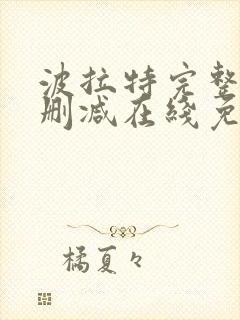 波拉特完整
删减在线免
橘夏々